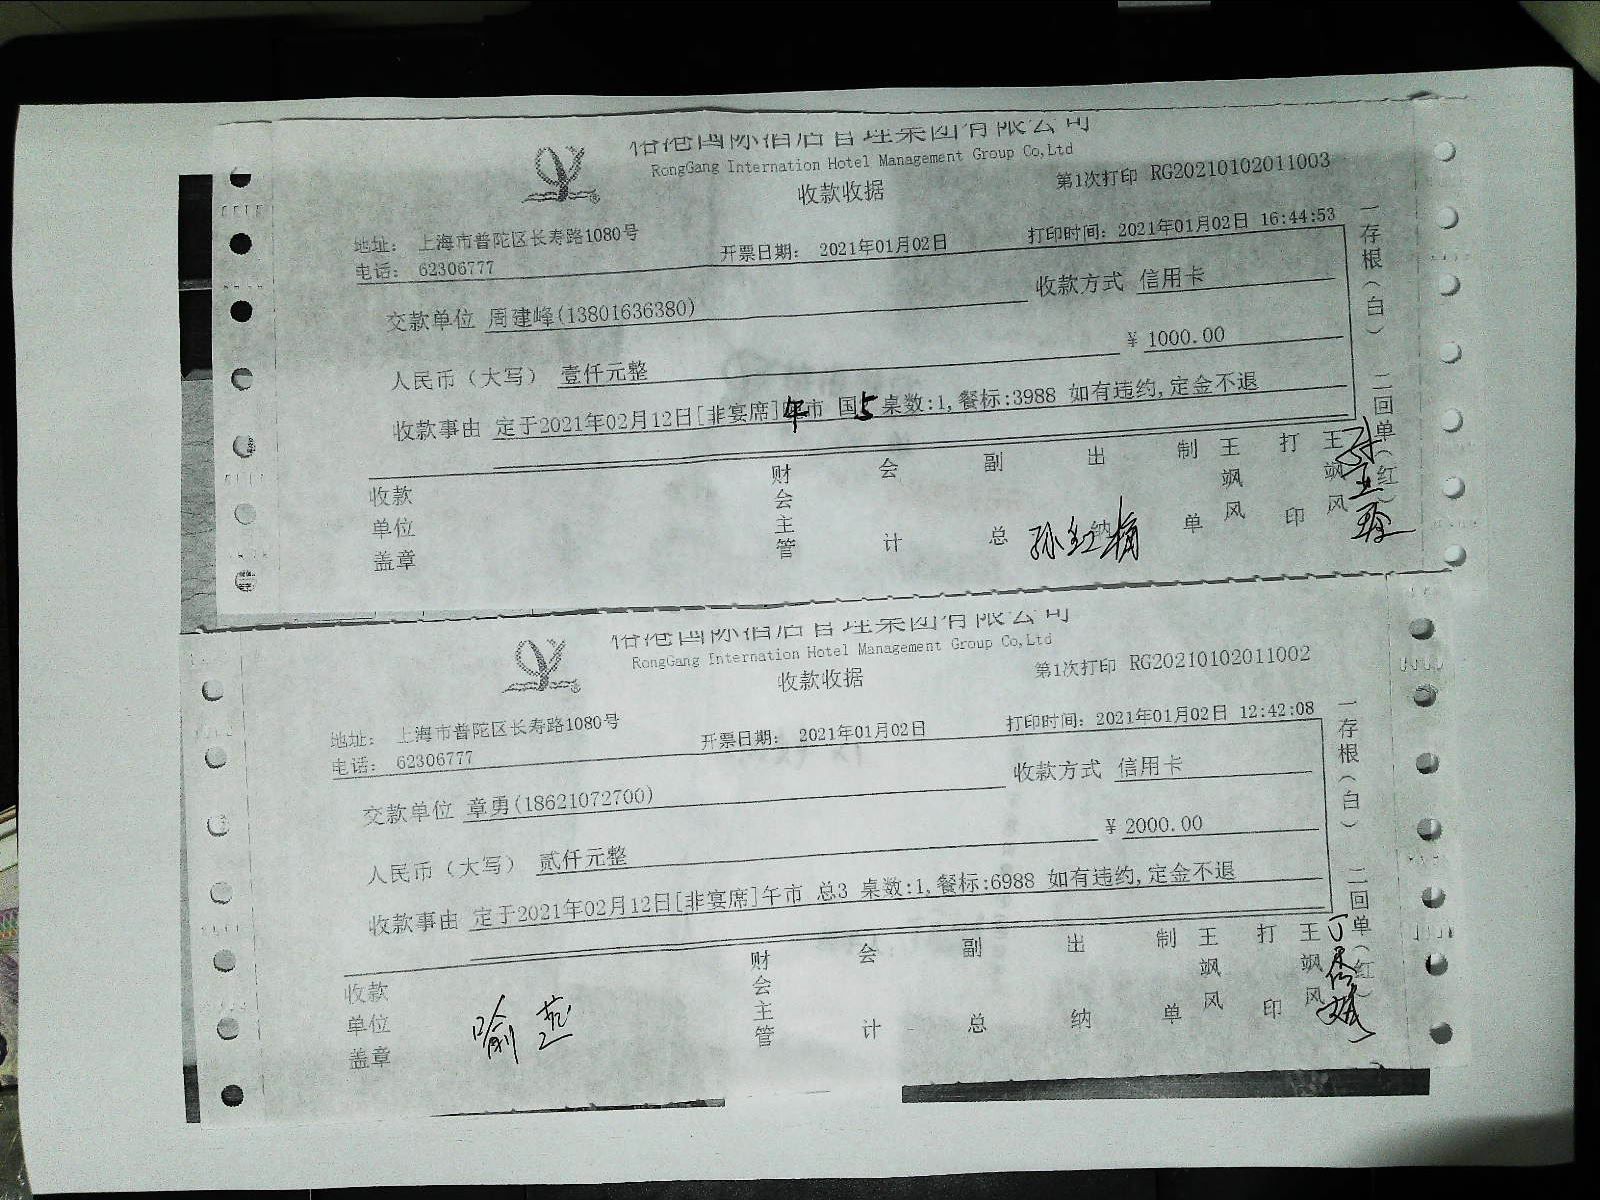 国际酒店管理集团有限公司
RongGang Internation Hotel Management Group Co,Ltd
收款收据
第1次打印 RG20210102011003
地址： 上海市普陀区长寿路1080号
电话： 62306777
开票日期： 2021年01月02日
打印时间：2021年01月02日 16:44:53
交款单位 周建峰(13801636380)
收款方式 信用卡
人民币（大写） 壹仟元整
¥ 1000.00
收款事由 定于2021年02月12日[非宴席]午市 国5 桌数:1,餐标:3988 如有违约,定金不退
收款单位盖章
财会主管
会计
副总
出纳
孙红梅
制单
王飒风
打印
王飒风
一存根（白） 二回单（红）
国际酒店管理集团有限公司
RongGang International Hotel Management Group Co,Ltd
收款收据
第1次打印 RG20210102011002
地址： 上海市普陀区长寿路1080号
电话： 62306777
开票日期： 2021年01月02日
打印时间：2021年01月02日 12:42:08
交款单位 章勇(18621072700)
收款方式 信用卡
人民币（大写） 贰仟元整
¥ 2000.00
收款事由 定于2021年02月12日[非宴席]午市 总3 桌数:1,餐标:6988 如有违约,定金不退
收款单位盖章
喻燕
财会主管
会计
副总
出纳
制单
王飒风
打印
王飒风
一存根（白） 二回单（红）